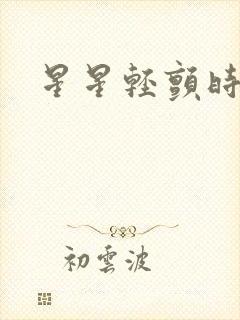 星星輕顫時
初雲波